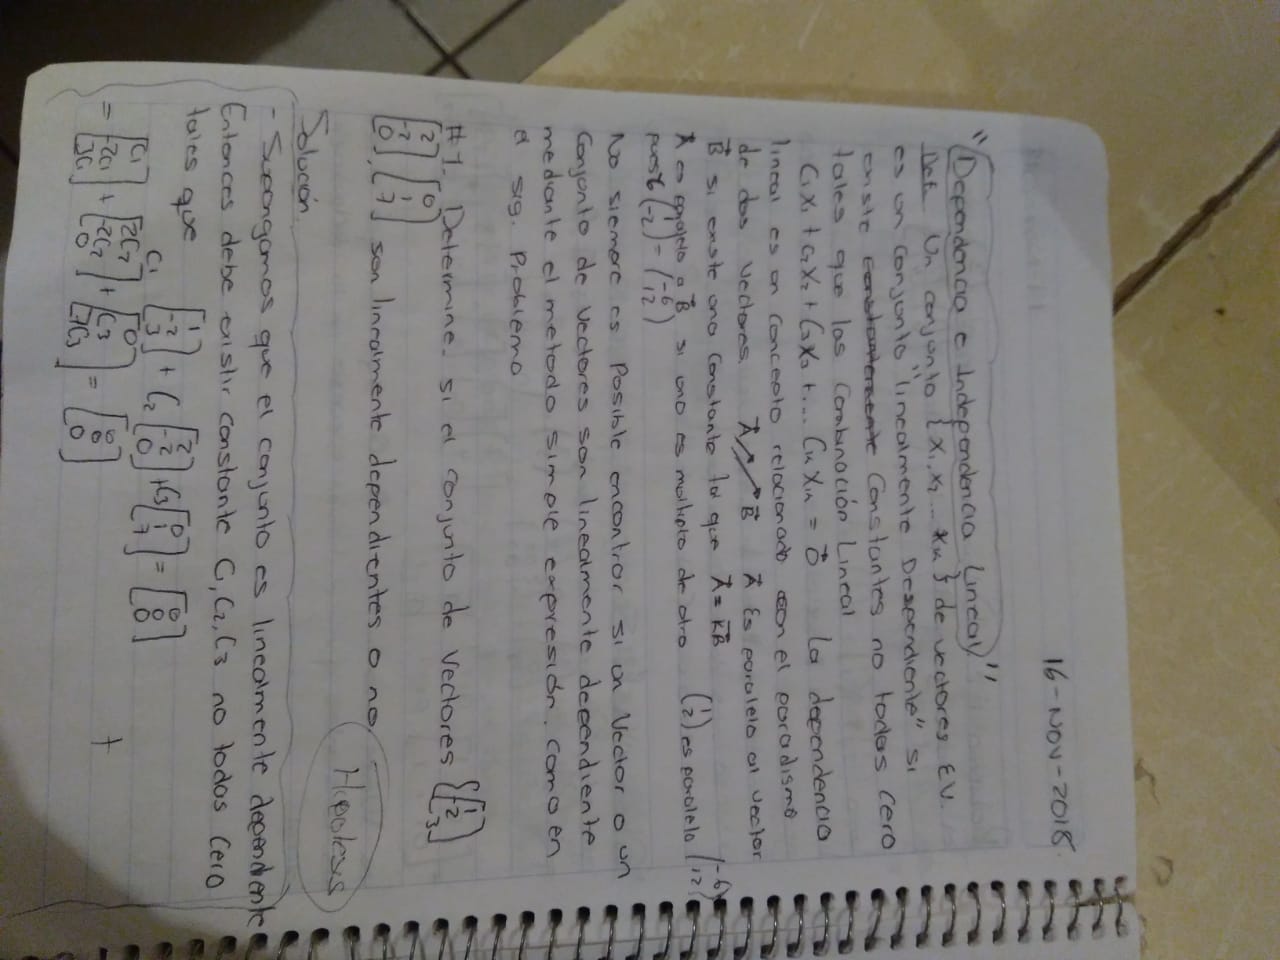 16-Nov-2018
"Dependencia e Independencia Lineal"
Def. Un conjunto {x₁, x₂ ... xₙ} de vectores EV
es un conjunto "linealmente Dependiente" si
existe Constantes no todas cero
tales que las Combinación Lineal
C₁x₁ + C₂x₂ + C₃x₃ + ... Cₙxₙ = 0⃗ La dependencia
lineal es un concepto relacionado con el
de dos vectores. A⃗ B⃗ A⃗ Es paralelo al vector
B⃗ si existe una constante tal que A⃗ = KB⃗
A⃗ es paralelo a B⃗ si uno es multiplo de otro (1 2) es paralelo (-6 12)
pues (-2) = (-6 12)
No siempre es Posible encontrar si un Vector o un
Conjunto de Vectores son linealmente dependiente
mediante el metodo simple expresión. como en
el sig. Problema
#1- Determine. si el conjunto de Vectores {[1 -2 3]
[2 -2 0], [0 1 7] son linealmente dependientes o no.
Solución. Hipotesis
- Supongamos que el conjunto es linealmente dependiente
Entonces debe existir constante C₁, C₂, C₃ no todos Cero
tales que
C₁ [1 -2 3] + C₂ [2 -2 0] + C₃ [0 1 7] = [0 0 0]
= [C₁ -2C₁ 3C₁] + [2C₂ -2C₂ 0] + [0 C₃ 7C₃] = [0 0 0]